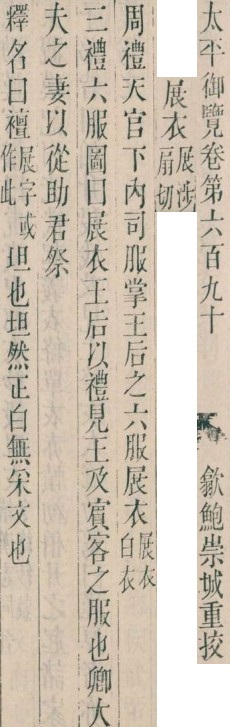 太平御覽卷第六百九十 歙鮑崇城重挍
展衣展涉扇切
周禮天官下內司服掌王后之六服展衣展衣白衣
三禮六服圖曰展衣王后以禮見王及賓客之服也卿大
夫之妻以從助君祭
釋名曰襢展字或作此坦也坦然正白無采文也